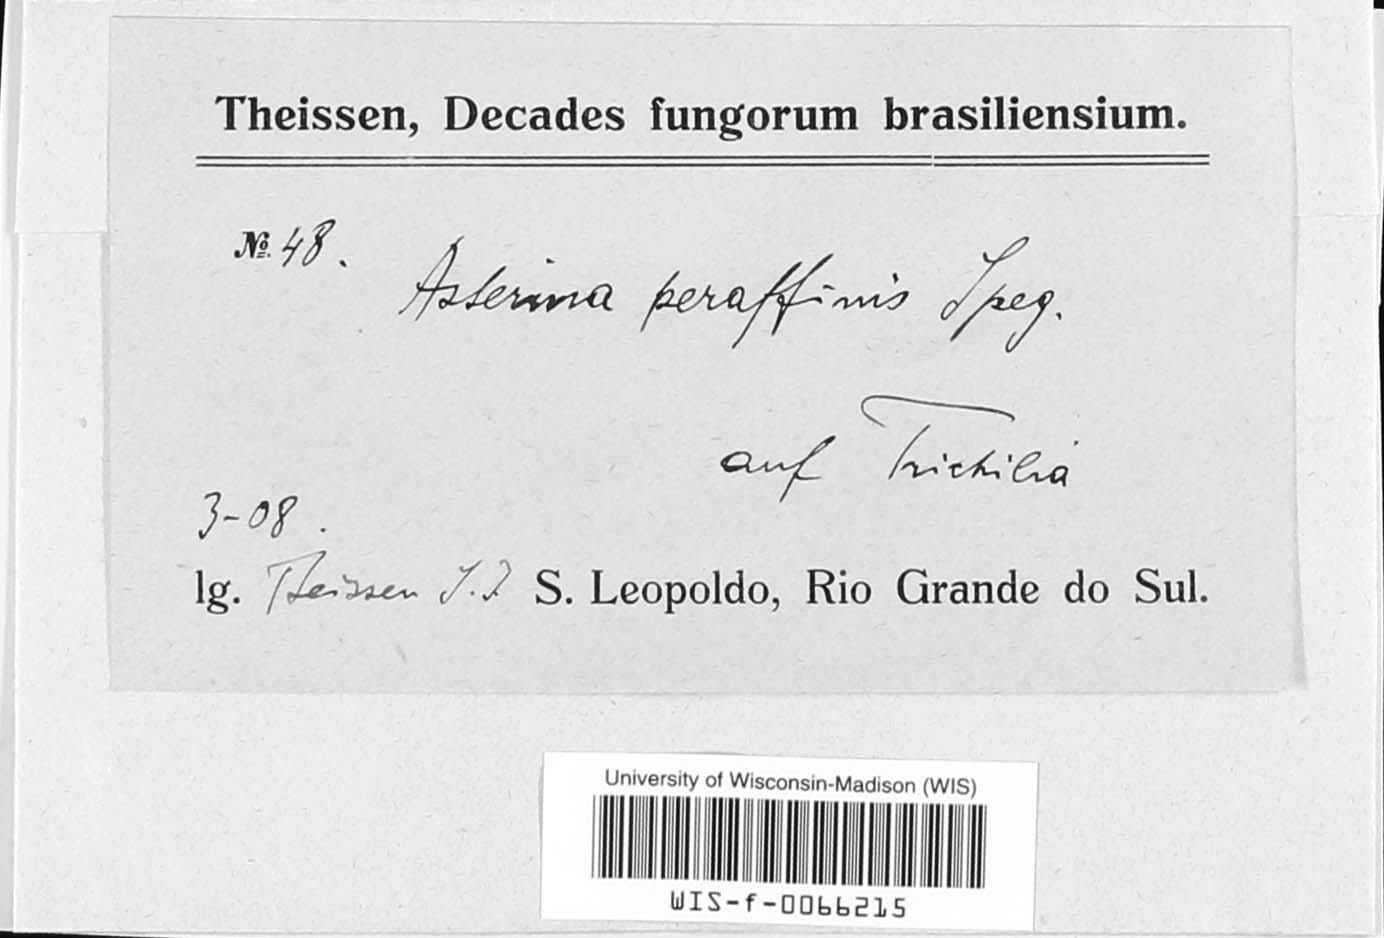 Theissen, Decades fungorum brasiliensium.
№ 48.
Asterina peraffinis Speg.
auf Trichilia
3-08.
lg. Theissen S.J. S. Leopoldo, Rio Grande do Sul.
University of Wisconsin-Madison (WIS)
WIS-f-0066215